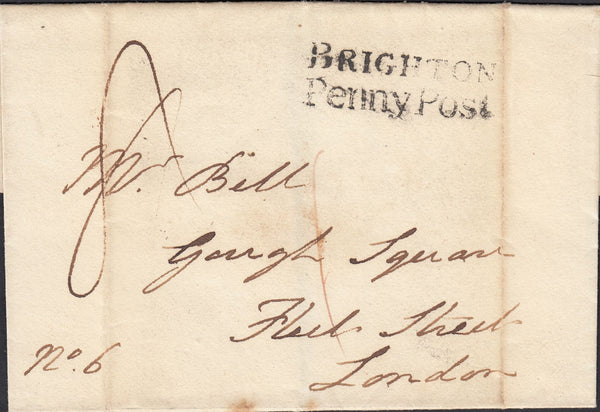 BRIGHTON
Penny Post
Mr. Bell
Gough Square
Fleet Street
London
No. 6